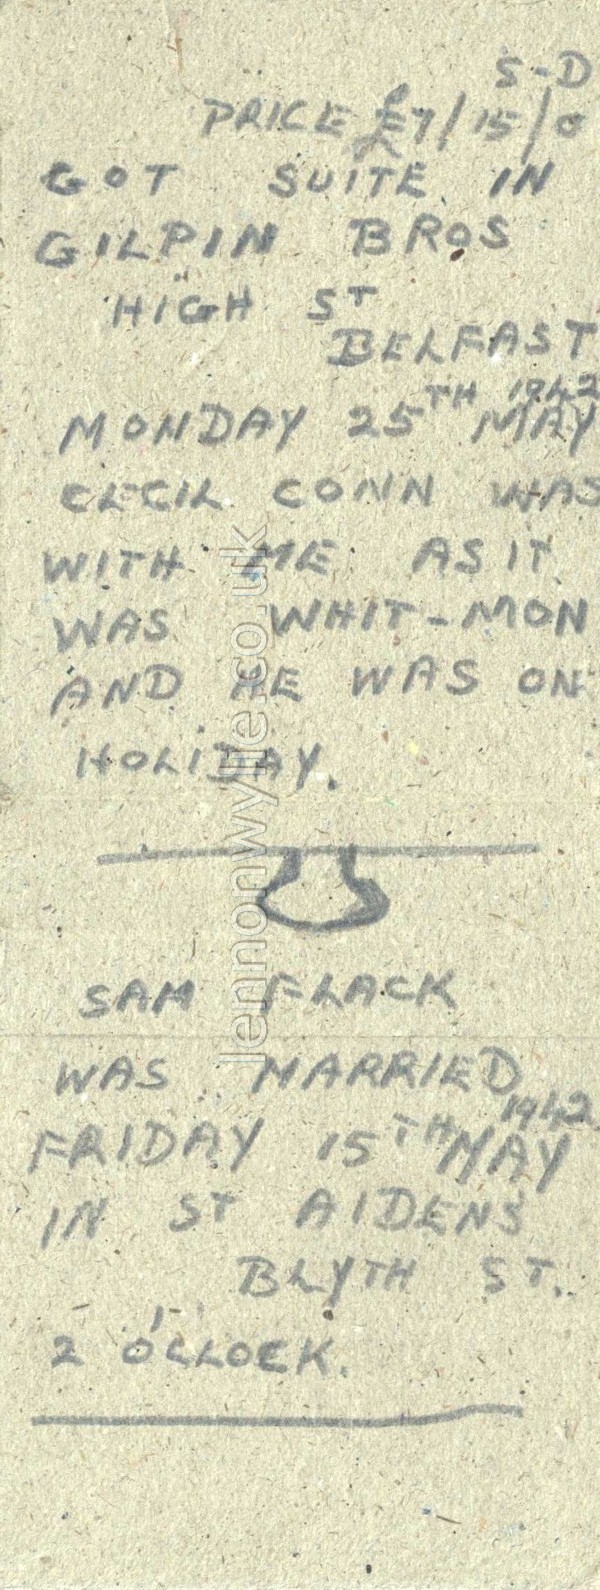 S-D
PRICE £7/15/0
GOT SUITE IN
GILPIN BROS
HIGH ST
BELFAST
MONDAY 25TH MAY 1942
CECIL CONN WAS
WITH ME AS IT
WAS WHIT-MON
AND HE WAS ON
HOLIDAY.
SAM FLACK
WAS MARRIED
FRIDAY 15TH MAY 1942
IN ST AIDENS
BLYTH ST.
2 O'CLOCK.
lennonwylie.co.uk